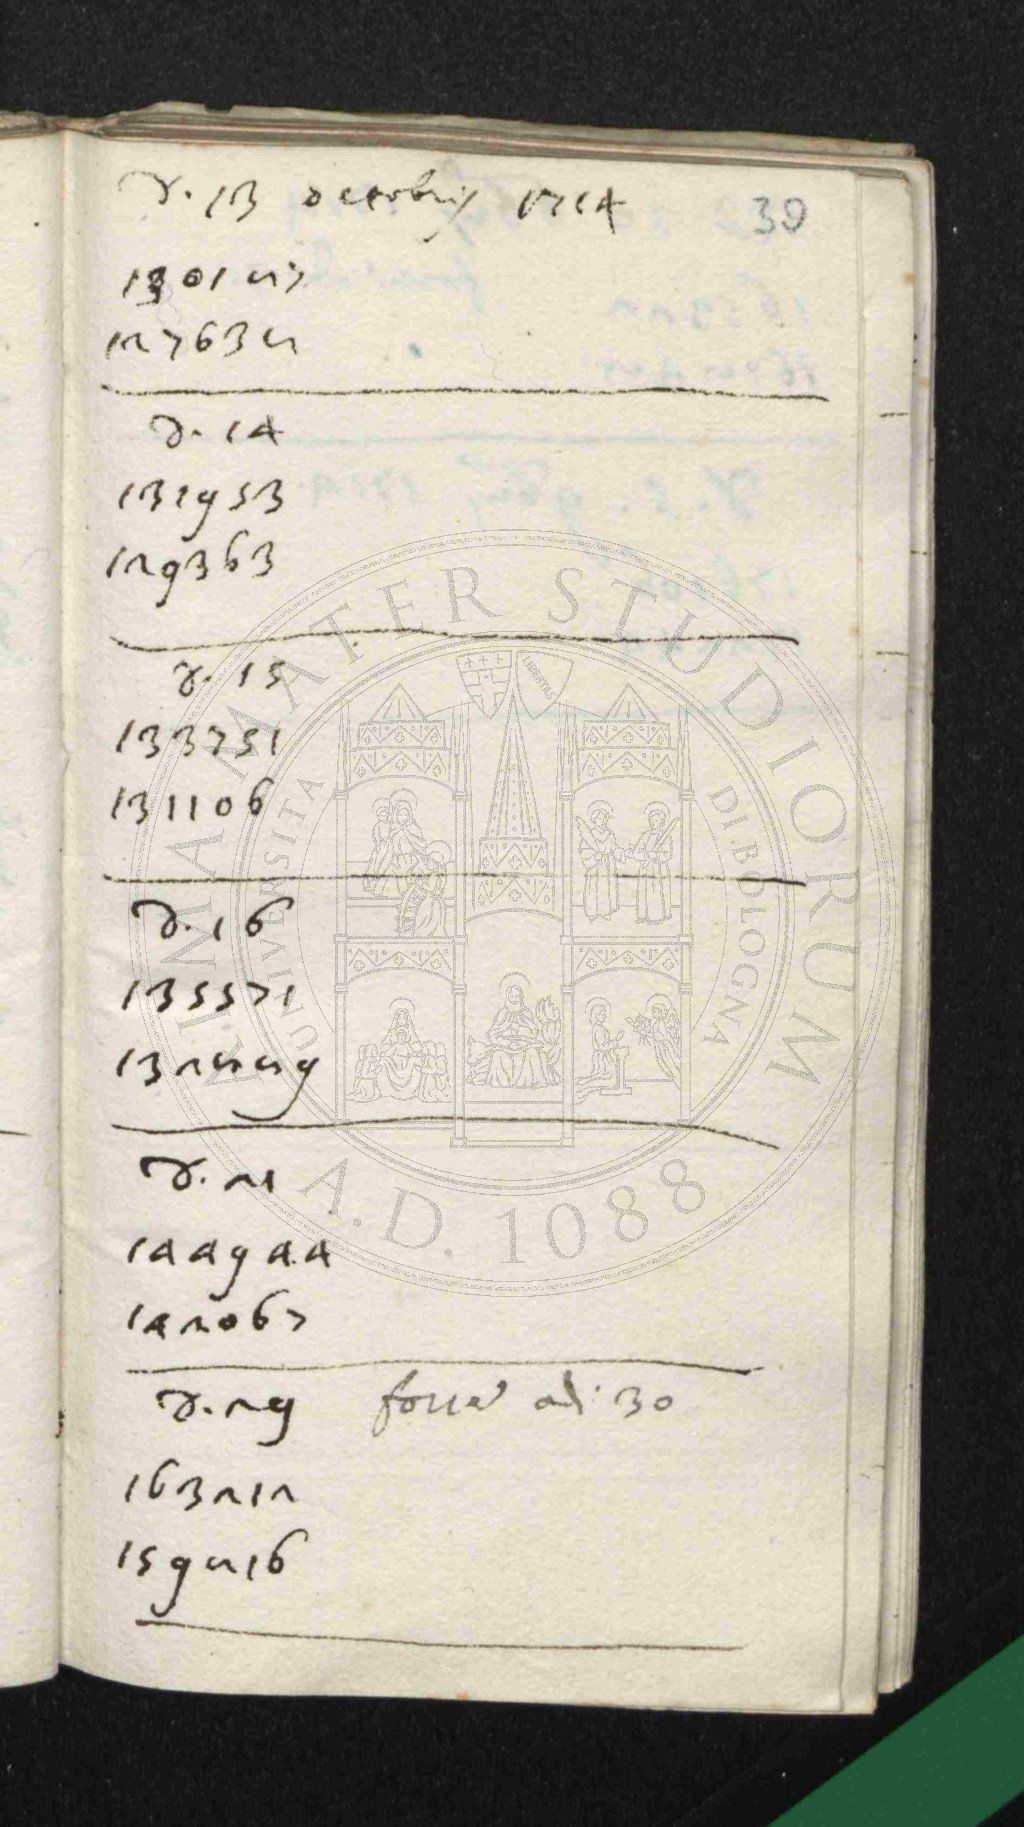 D. 13 octobris 1714
39
130187
127638
D. 14
131953
129363
D. 15
133751
131106
D. 16
135571
132889
D. 21
144944
142067
D. 29 forse adì 30
163212
159816
ALMA MATER STUDIORUM
UNIVERSITA DI BOLOGNA
LIBERTAS
A.D. 1088